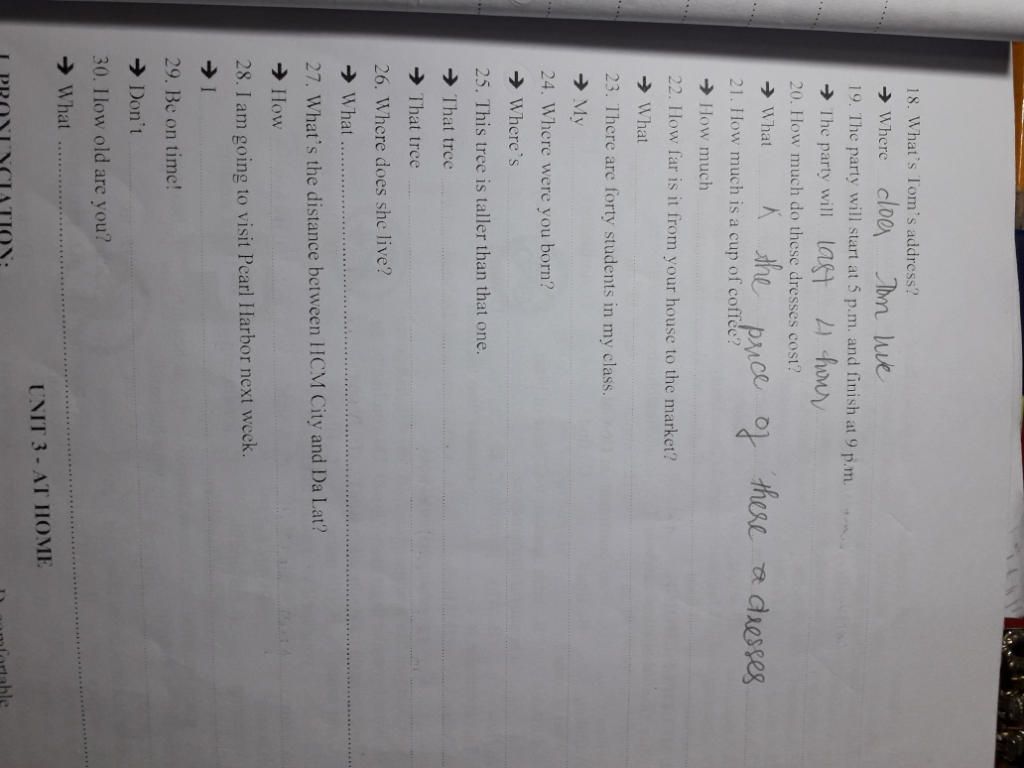 18. What's Tom's address?
➔ Where does Tom live
19. The party will start at 5 p.m. and finish at 9 p.m.
➔ The party will last 4 hour
20. How much do these dresses cost?
➔ What is the price of these a dresses
21. How much is a cup of coffee?
➔ How much
22. How far is it from your house to the market?
➔ What
23. There are forty students in my class.
➔ My
24. Where were you born?
➔ Where's
25. This tree is taller than that one.
➔ That tree
➔ That tree
26. Where does she live?
➔ What
27. What's the distance between HCM City and Da Lat?
➔ How
28. I am going to visit Pearl Harbor next week.
➔ I
29. Be on time!
➔ Don't
30. How old are you?
➔ What
UNIT 3 - AT HOME
I. PRONUNCIATION: